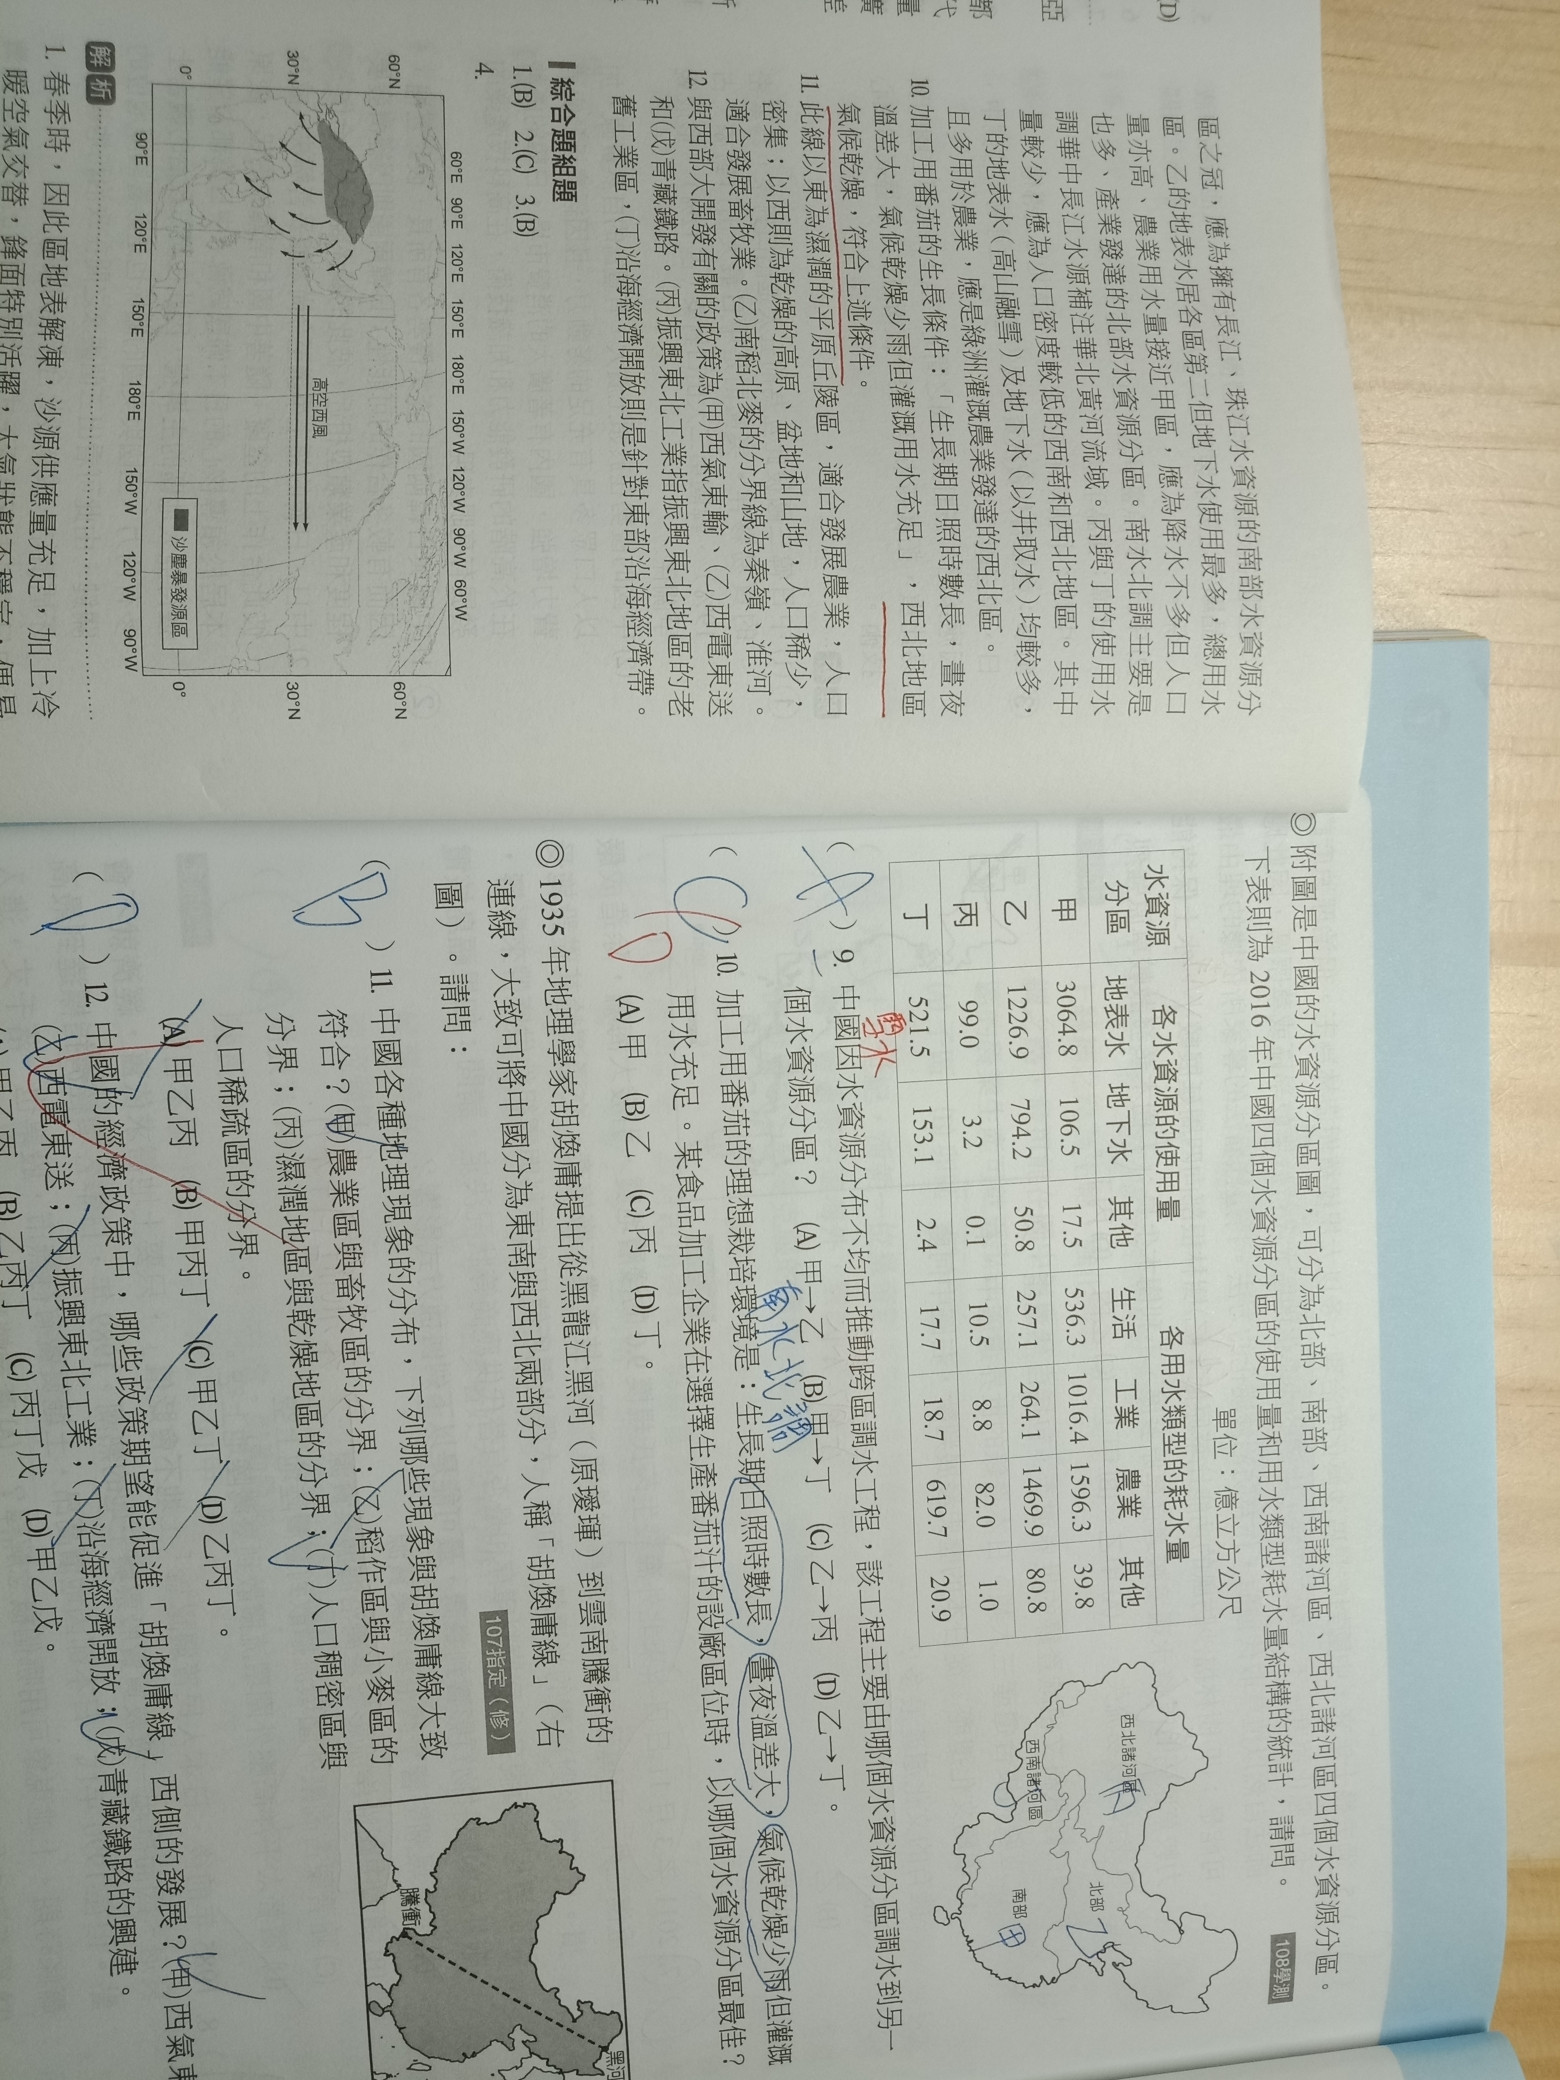 (D)
區之冠，應為擁有長江、珠江水資源的南部水資源分
區。乙的地表水居各區第二但地下水使用最多，總用水
量亦高、農業用水量接近甲區，應為降水不多但人口
也多、產業發達的北部水資源分區。南水北調主要是
調華中長江水源補注華北黃河流域。丙與丁的使用水
量較少，應為人口密度較低的西南和西北地區。其中
丁的地表水（高山融雪）及地下水（以井取水）均較多，
且多用於農業，應是綠洲灌溉農業發達的西北區。
10. 加工用番茄的生長條件：「生長期日照時數長，晝夜
溫差大，氣候乾燥少雨但灌溉用水充足」，西北地區
氣候乾燥，符合上述條件。
11. 此線以東為濕潤的平原丘陵區，適合發展農業，人口
密集；以西則為乾燥的高原、盆地和山地，人口稀少，
適合發展畜牧業。(乙)南稻北麥的分界線為秦嶺、淮河。
12. 與西部大開發有關的政策為(甲)西氣東輸、(乙)西電東送
和(戊)青藏鐵路。(丙)振興東北工業指振興東北地區的老
舊工業區，(丁)沿海經濟開放則是針對東部沿海經濟帶。
綜合題組題
1.(B) 2.(C) 3.(B)
4.
60°E 90°E 120°E 150°E 180°E 150°W 120°W 90°W 60°W
60°N 60°N
30°N 30°N
0° 0°
高空西風
沙塵暴發源區
90°E 120°E 150°E 180°E 150°W 120°W 90°W
解析
1. 春季時，因此區地表解凍，沙源供應量充足，加上冷
暖空氣交替，鋒面特別活躍，大氣狀態不穩定，便易
◎ 附圖是中國的水資源分區圖，可分為北部、南部、西南諸河區、西北諸河區四個水資源分區。
下表則為 2016 年中國四個水資源分區的使用量和用水類型耗水量結構的統計，請問。
108學測
單位：億立方公尺
水資源 各水資源的使用量 各用水類型的耗水量
分區 地表水 地下水 其他 生活 工業 農業 其他
甲 3064.8 106.5 17.5 536.3 1016.4 1596.3 39.8
乙 1226.9 794.2 50.8 257.1 264.1 1469.9 80.8
丙 99.0 3.2 0.1 10.5 8.8 82.0 1.0
丁 521.5 153.1 2.4 17.7 18.7 619.7 20.9
西北諸河區
丙
西南諸河區
北部
乙
南部
甲
用水
( A ) 9. 中國因水資源分布不均而推動跨區調水工程，該工程主要由哪個水資源分區調水到另一
個水資源分區？ (A) 甲→乙 (B) 甲→丁 (C) 乙→丙 (D) 乙→丁。
南水北調
( C ) 10. 加工用番茄的理想栽培環境是：生長期日照時數長，晝夜溫差大，氣候乾燥少雨但灌溉
D
用水充足。某食品加工企業在選擇生產番茄汁的設廠區位時，以哪個水資源分區最佳？
(A) 甲 (B) 乙 (C) 丙 (D) 丁。
◎ 1935 年地理學家胡煥庸提出從黑龍江黑河（原璦琿）到雲南騰衝的
連線，大致可將中國分為東南與西北兩部分，人稱「胡煥庸線」（右
圖）。請問：
107指定（修）
( B ) 11. 中國各種地理現象的分布，下列哪些現象與胡煥庸線大致
符合？(甲)農業區與畜牧區的分界；(乙)稻作區與小麥區的
分界；(丙)濕潤地區與乾燥地區的分界；(丁)人口稠密區與
人口稀疏區的分界。
(A) 甲乙丙 (B) 甲丙丁 (C) 甲乙丁 (D) 乙丙丁。
黑河
騰衝
( D ) 12. 中國的經濟政策中，哪些政策期望能促進「胡煥庸線」西側的發展？(甲)西氣東
(乙)西電東送；(丙)振興東北工業；(丁)沿海經濟開放；(戊)青藏鐵路的興建。
(A) 甲乙丙 (B) 乙丙丁 (C) 丙丁戊 (D) 甲乙戊。